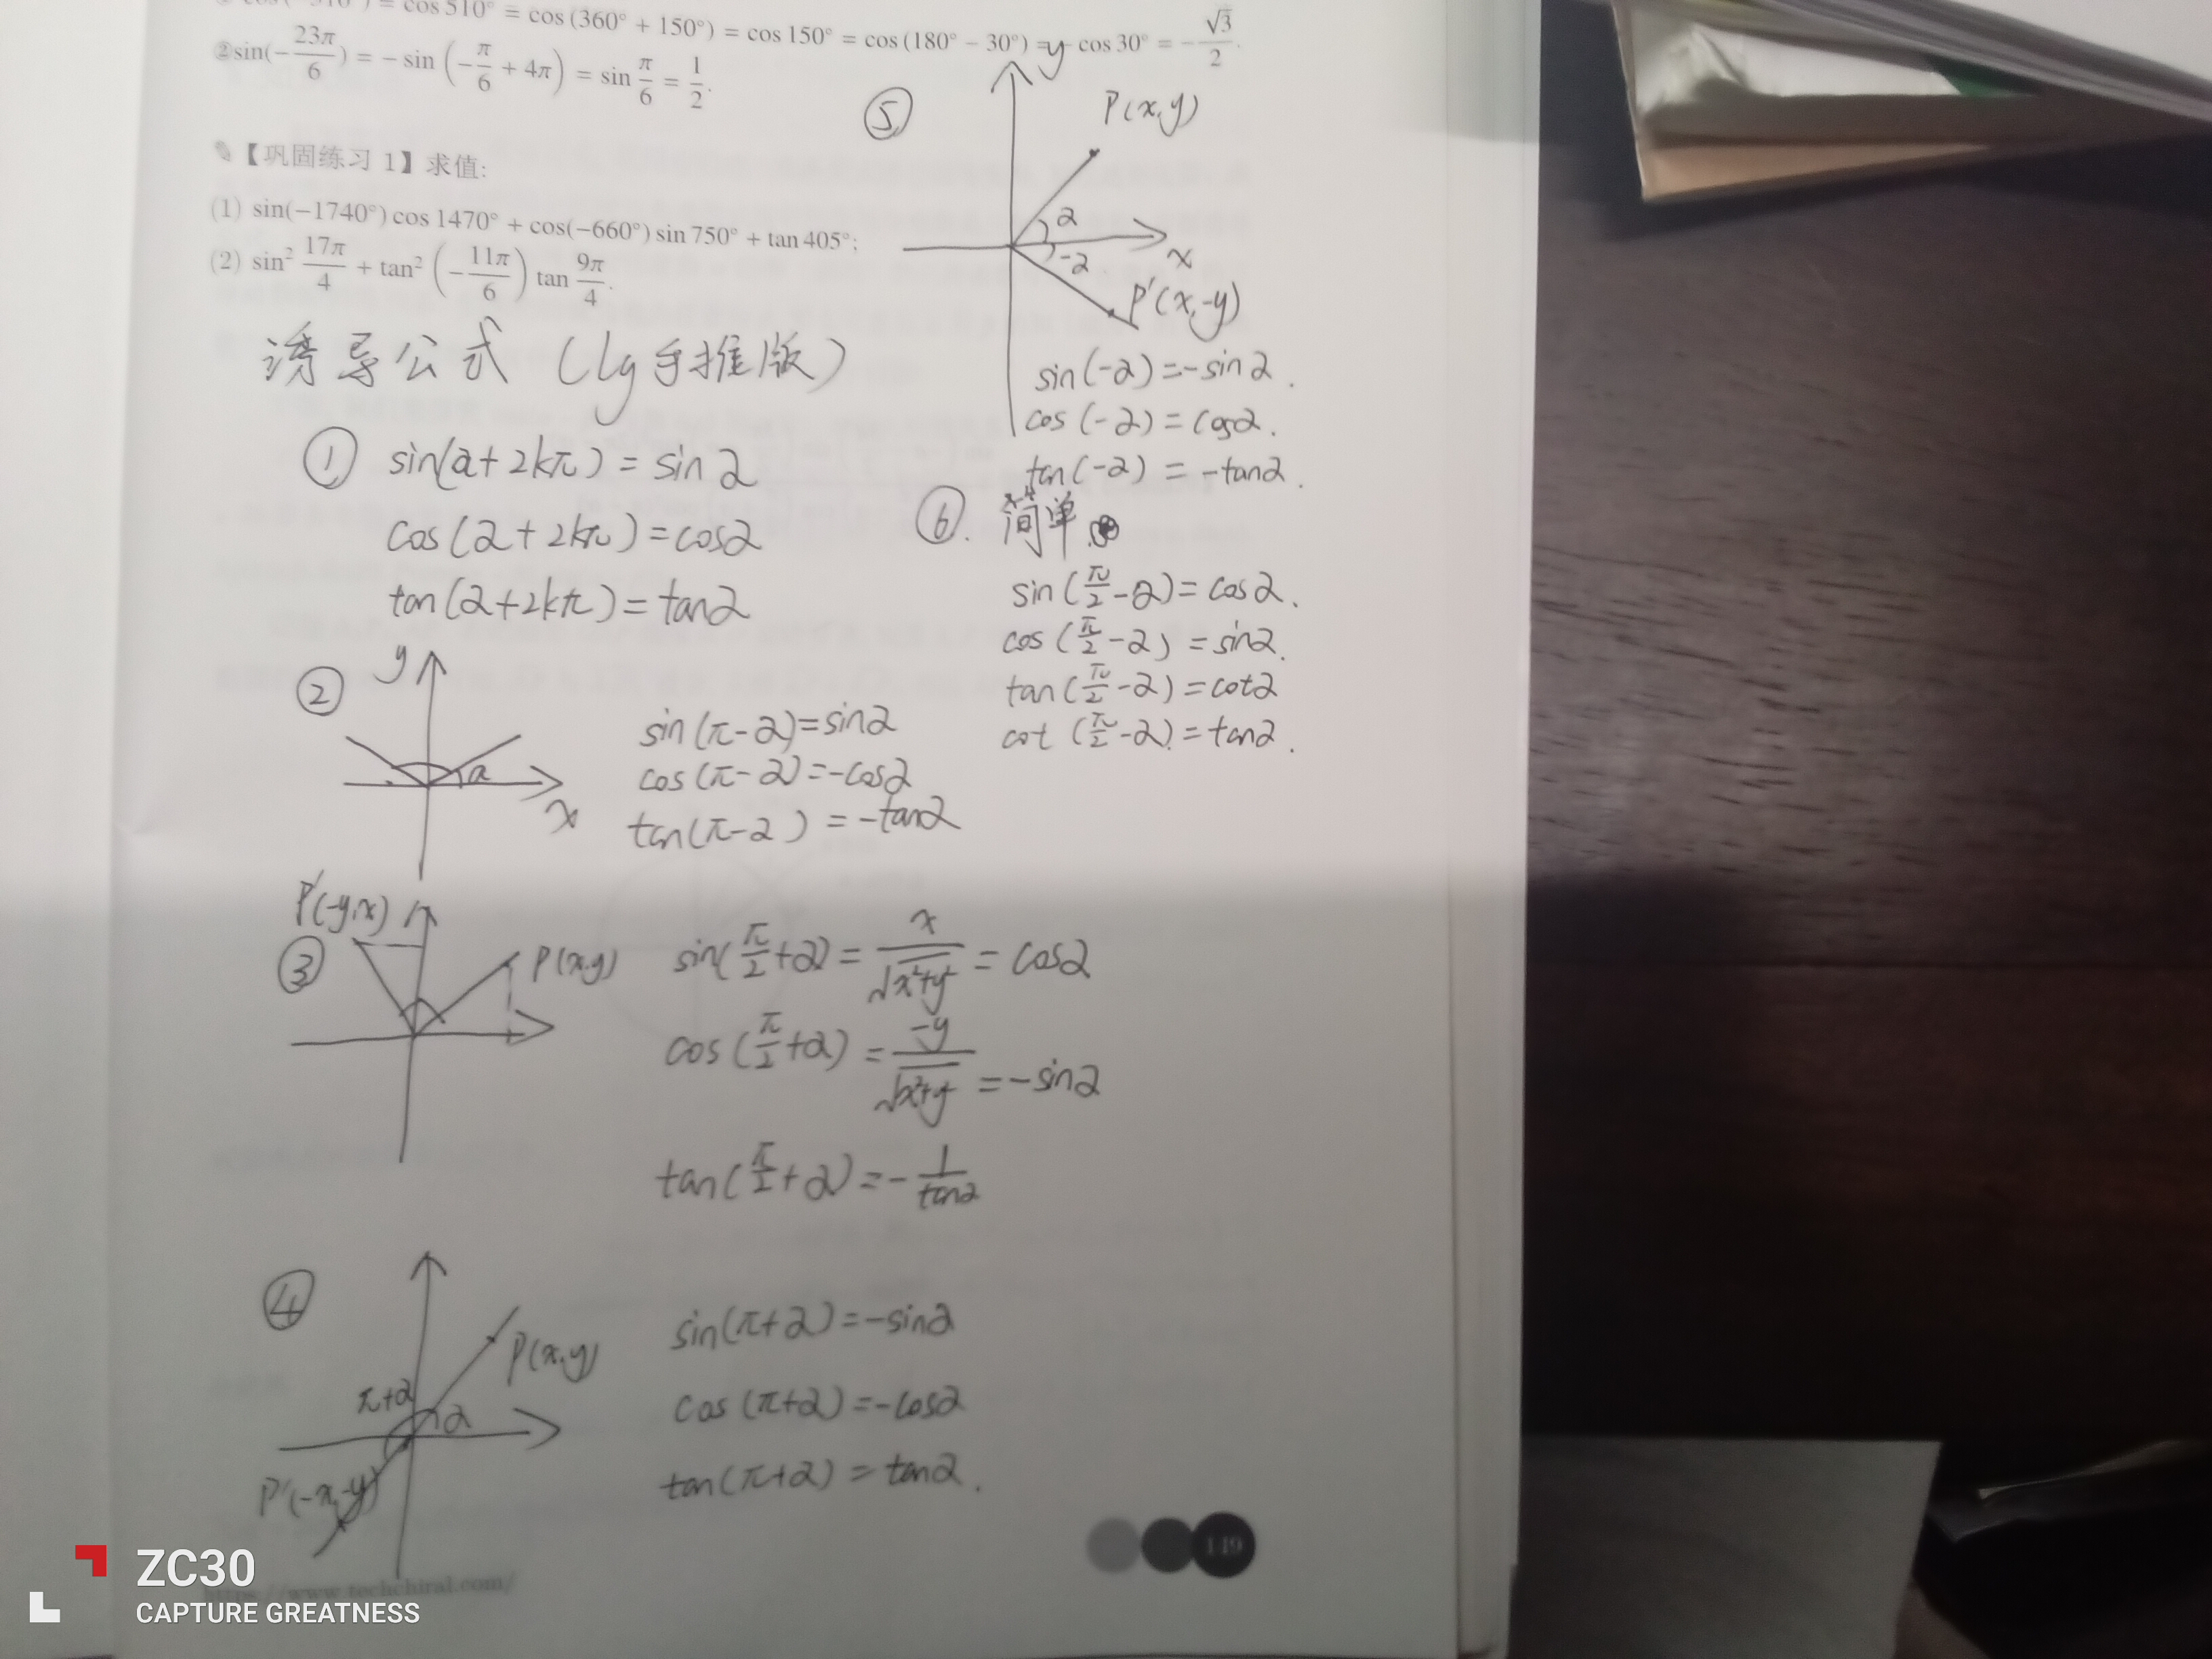 cos 510° = cos (360° + 150°) = cos 150° = cos (180° − 30°) = − cos 30° = −√3/2.
②sin(−23π/6) = − sin (−π/6 + 4π) = sin π/6 = 1/2.
【巩固练习 1】求值:
(1) sin(−1740°) cos 1470° + cos(−660°) sin 750° + tan 405°;
(2) sin² 17π/4 + tan² (−11π/6) tan 9π/4.
诱导公式（lg手推版）
① sin(α+2kπ)=sinα
cos(α+2kπ)=cosα
tan(α+2kπ)=tanα
②
y
x
α
sin(π-α)=sinα
cos(π-α)=-cosα
tan(π-α)=-tanα
③
P'(-y,x)
P(x,y)
sin(π/2+α)=x/√(x²+y²)=cosα
cos(π/2+α)=-y/√(x²+y²)=-sinα
tan(π/2+α)=-1/tanα
④
P(x,y)
π+α
α
P'(-x,-y)
sin(π+α)=-sinα
cos(π+α)=-cosα
tan(π+α)=tanα.
⑤
y
P(x,y)
α
x
-α
P'(x,-y)
sin(-α)=-sinα.
cos(-α)=cosα.
tan(-α)=-tanα.
⑥. 简单.
sin(π/2-α)=cosα.
cos(π/2-α)=sinα.
tan(π/2-α)=cotα
cot(π/2-α)=tanα.
149
https://www.techchiral.com/
ZC30
CAPTURE GREATNESS